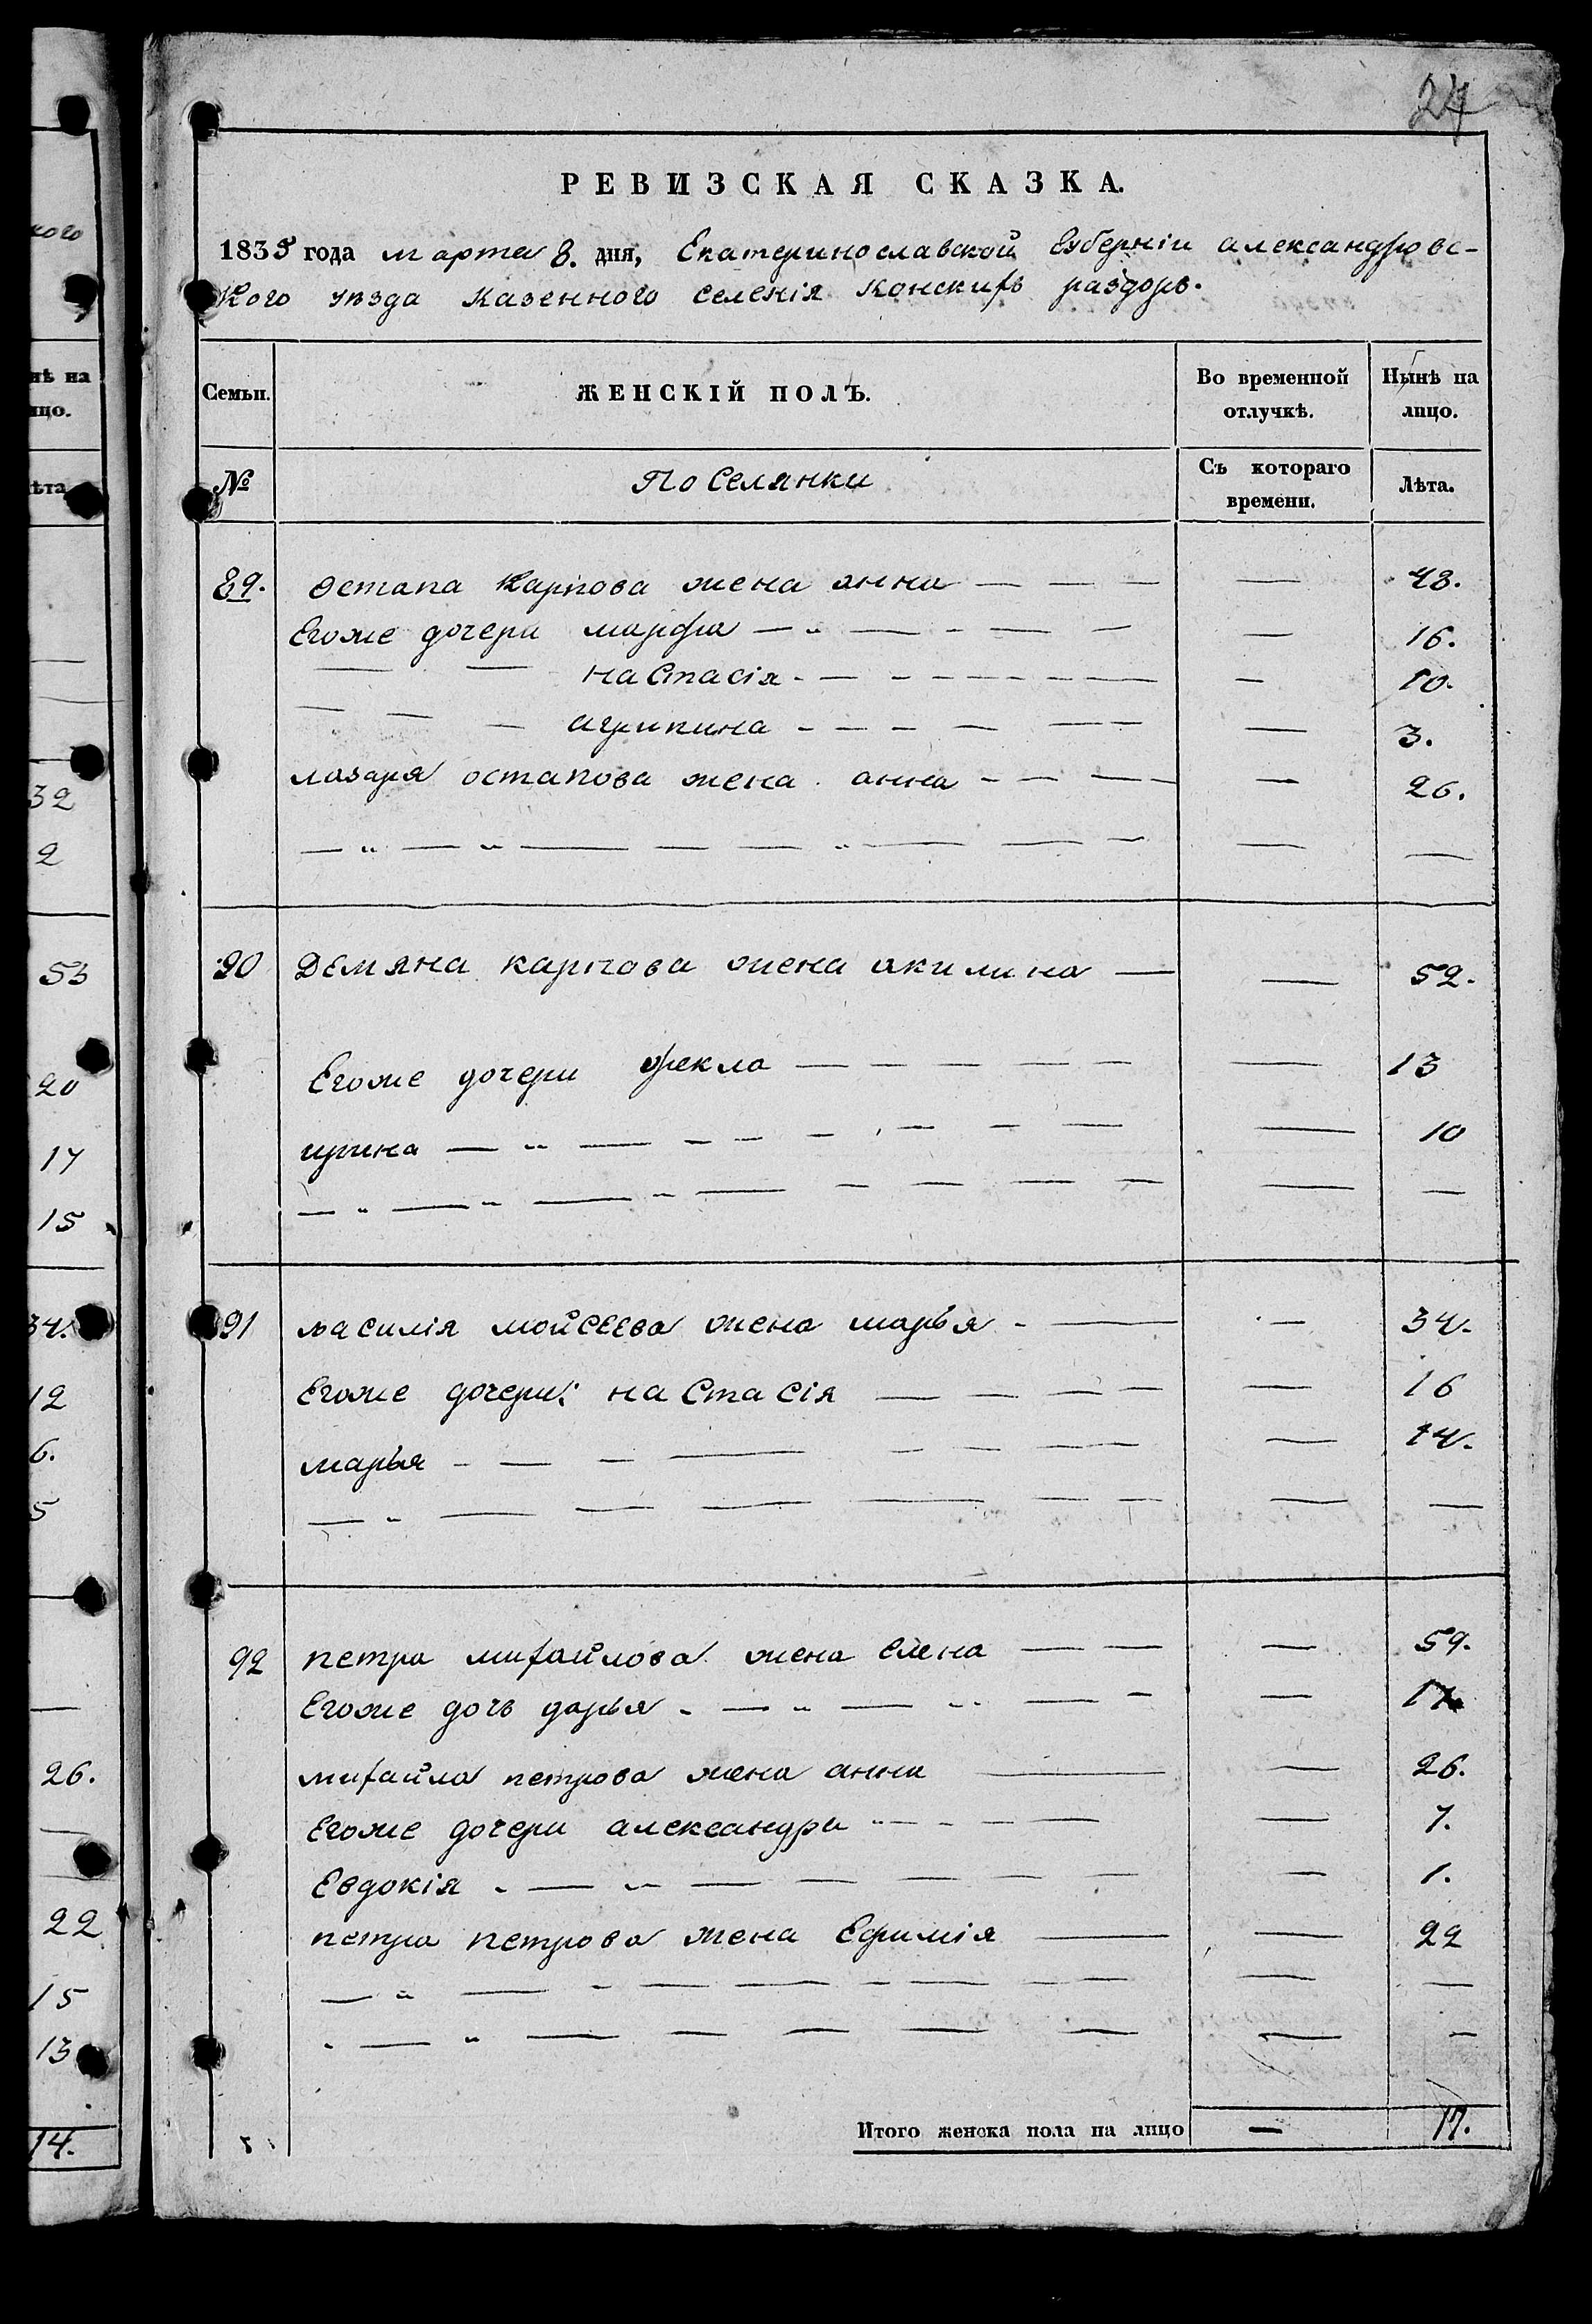 24
РЕВИЗСКАЯ СКАЗКА.
1835 года марта 8. дня, Екатеринославской Губерніи александровс-
кого уѣзда казенного селенія Конскихъ раздоръ.
Семьи. ЖЕНСКІЙ ПОЛЪ. Во временной отлучкѣ. Нынѣ на лицо.
№ Поселянки Съ котораго времени. Лѣта.
89. Остапа Карпова жена анна — — — — 48.
Егоже дочери марфа — „ — - — — — 16.
— — настасія - — - - - - - — — 10.
— — — агрипина - - - — — — — 3.
лазаря остапова жена анна - — — — 26.
— „ — „ — — — „ — — — — —
90 Демяна карпова жена акилина — — 52.
Егоже дочери фекла — — — — — — 13
ирина — „ — - - — - — — — 10
— „ — „ — - — — — — — — —
91 василія мойсеева жена марья - — - — 34.
Егоже дочери: настасія — — — — — 16
марья - — - — — — — — — 14.
— „ — — — — — — — —
92 петра михайлова жена елена — — — 59.
Егоже дочь дарья - — „ — - - — - — 17
михайла петрова жена анна — — 26.
Егоже дочери александра „ - - - — — — 7.
Евдокія - — „ — — — — — — 1.
петра петрова жена Ефимія — — 22
— „ — - — — - — — — — —
- — „ — — — — — — —
Итого женска пола на лицо — 17.
кого
нѣ на
ицо.
ѣта
32
2
53
20
17
15
34.
12
6.
5
26.
22
15
13
14.